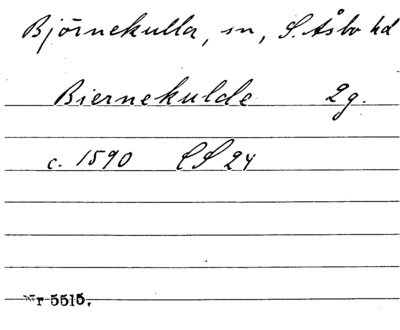 Björnekulla, sn, S. Åsbo hd
Biernekulde 2g.
c. 1590 LS 24
Nr 5515.